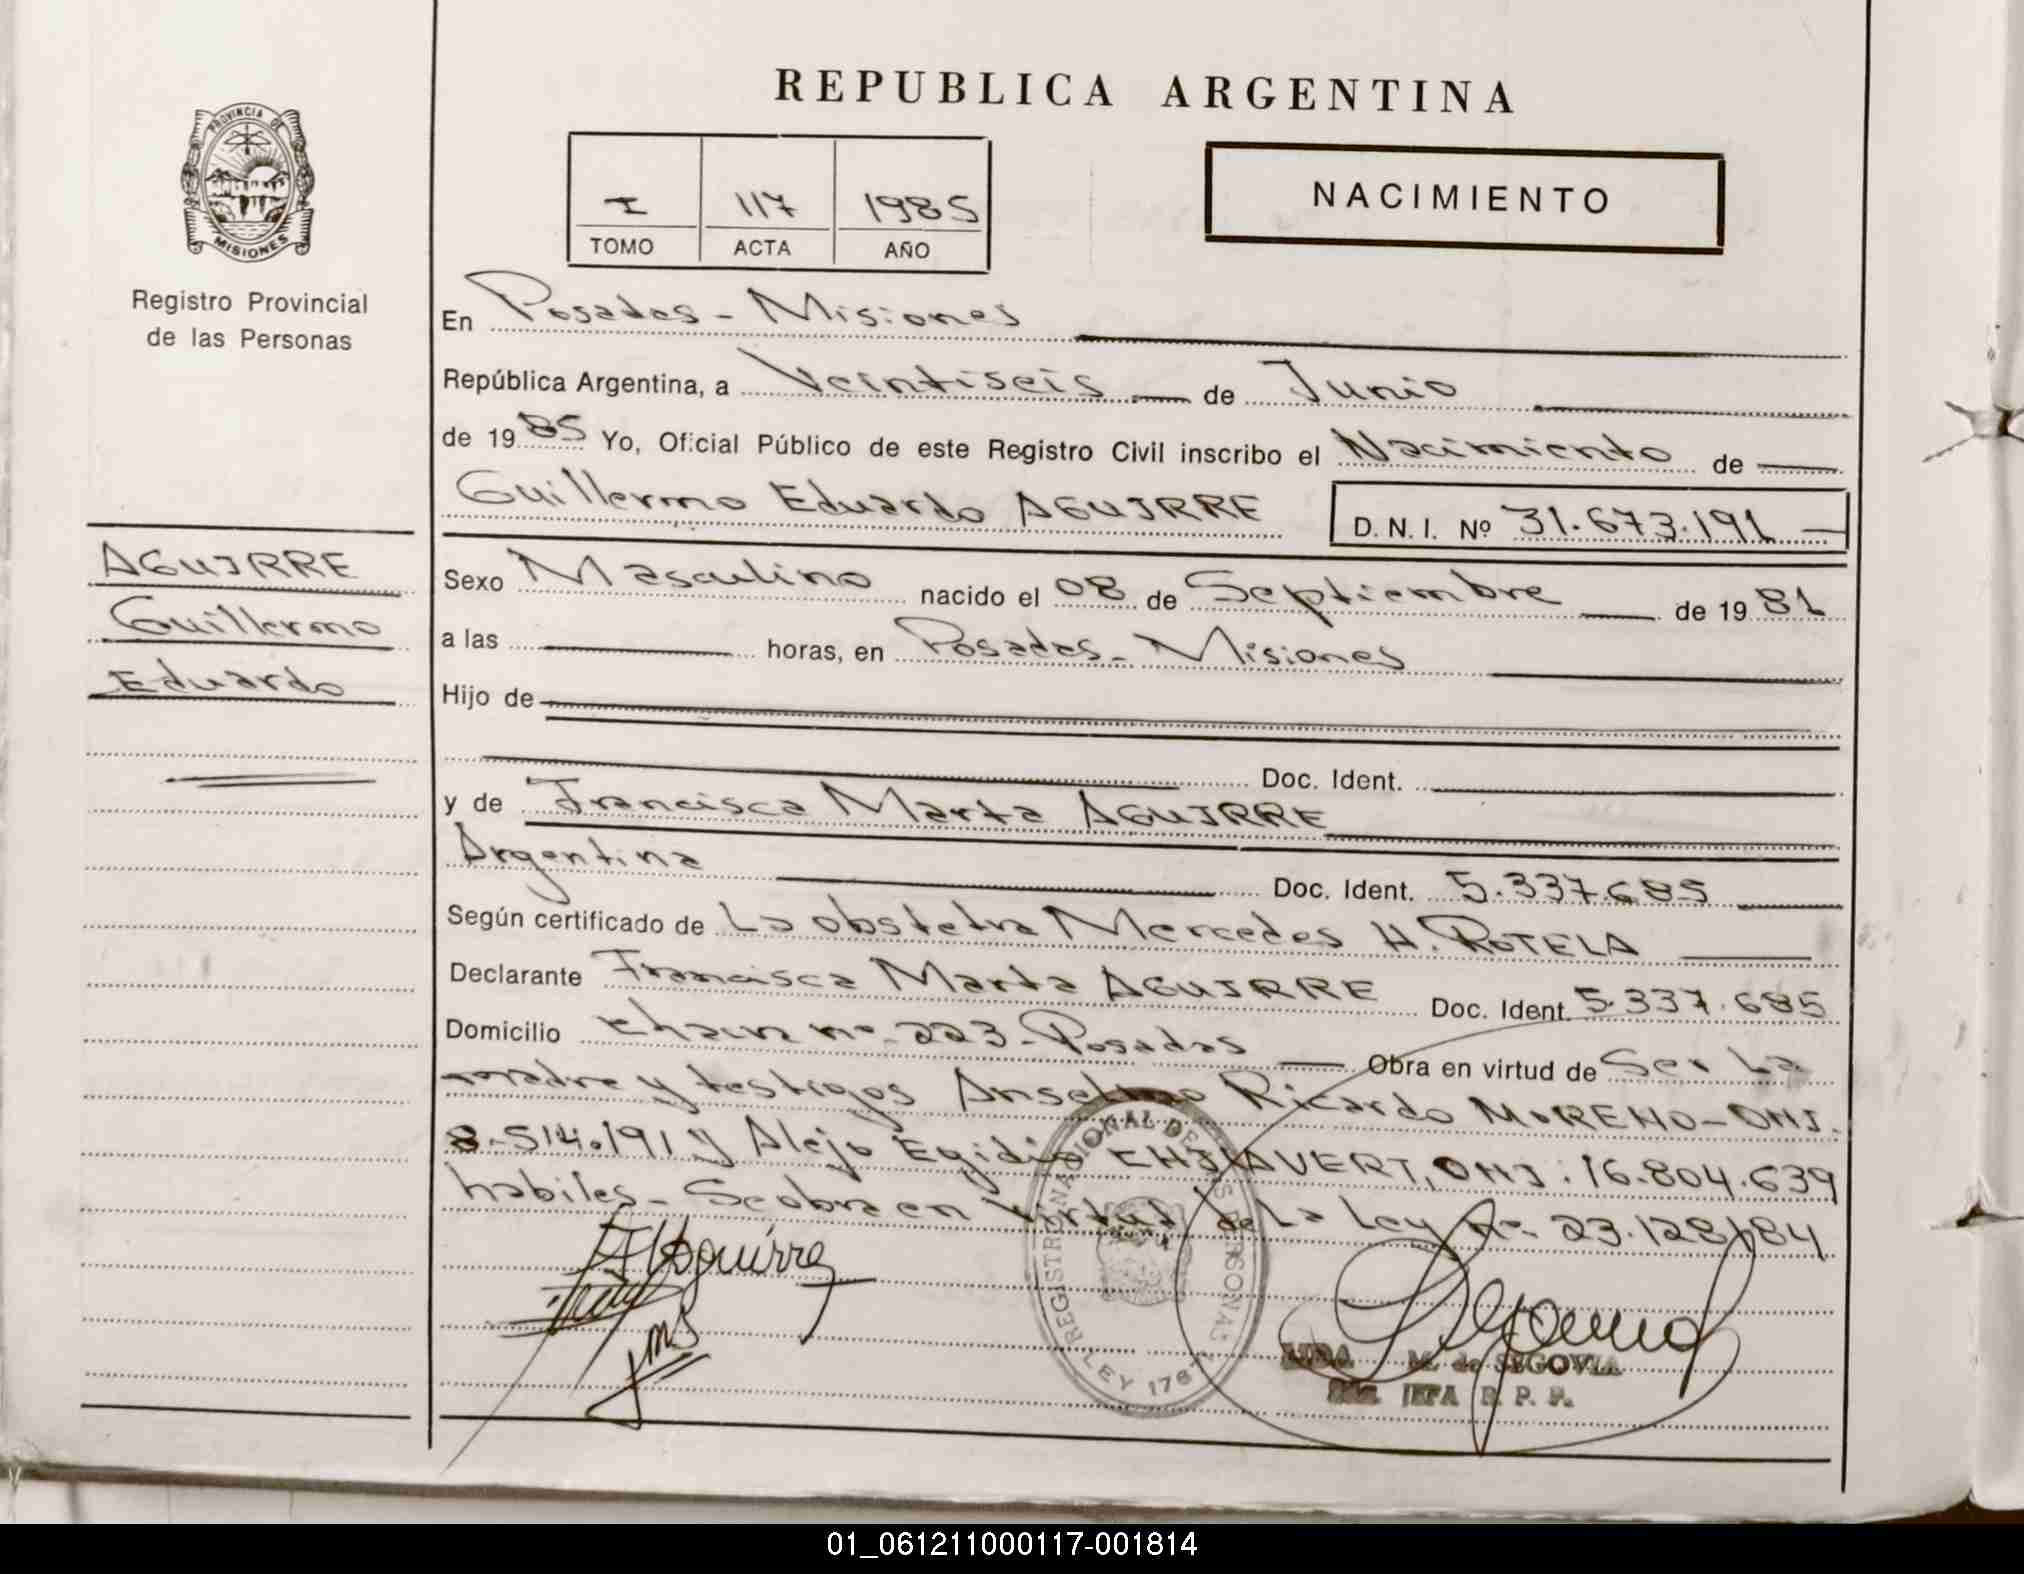 REPUBLICA ARGENTINA
PROVINCIA DE
MISIONES
Registro Provincial
de las Personas
I 117 1985
TOMO ACTA AÑO
NACIMIENTO
En Posadas - Misiones
República Argentina, a Veintiseis de Junio
de 1985 Yo, Oficial Público de este Registro Civil inscribo el Nacimiento de
Guillermo Eduardo AGUIRRE D.N.I. Nº 31.673.191
AGUIRRE
Guillermo
Eduardo
Sexo Masculino nacido el 08 de Septiembre de 1981
a las horas, en Posadas - Misiones
Hijo de
Doc. Ident.
y de Francisca Marta AGUIRRE
Argentina Doc. Ident. 5.337.685
Según certificado de La obstetra Mercedes H. ROTELA
Declarante Francisca Marta AGUIRRE Doc. Ident. 5.337.685
Domicilio nº 223 - Posadas Obra en virtud de Ser La
madre y testigos Anselmo Ricardo MORENO - DNI.
8.514.191 y Alejo Egidio CHILAVERT, DNI: 16.804.639
habiles - Se obra en virtud de La Ley nº 23.128/84
Aguirre
REGISTRO NACIONAL DE LAS PERSONAS
LEY
M. de SEGOVIA
JEFA R. P. P.
01_061211000117-001814